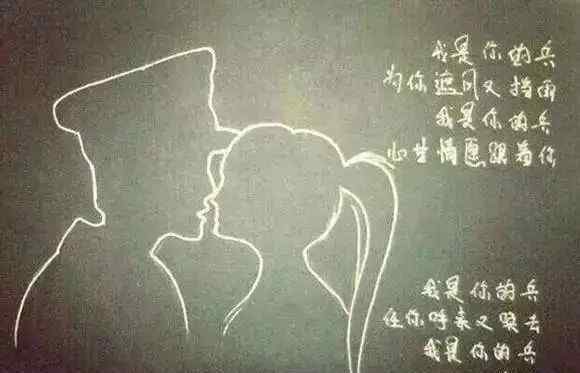 我是你的兵
为你遮风又挡雨
我是你的兵
心甘情愿跟着你
我是你的兵
任你呼来又唤去
我是你的兵